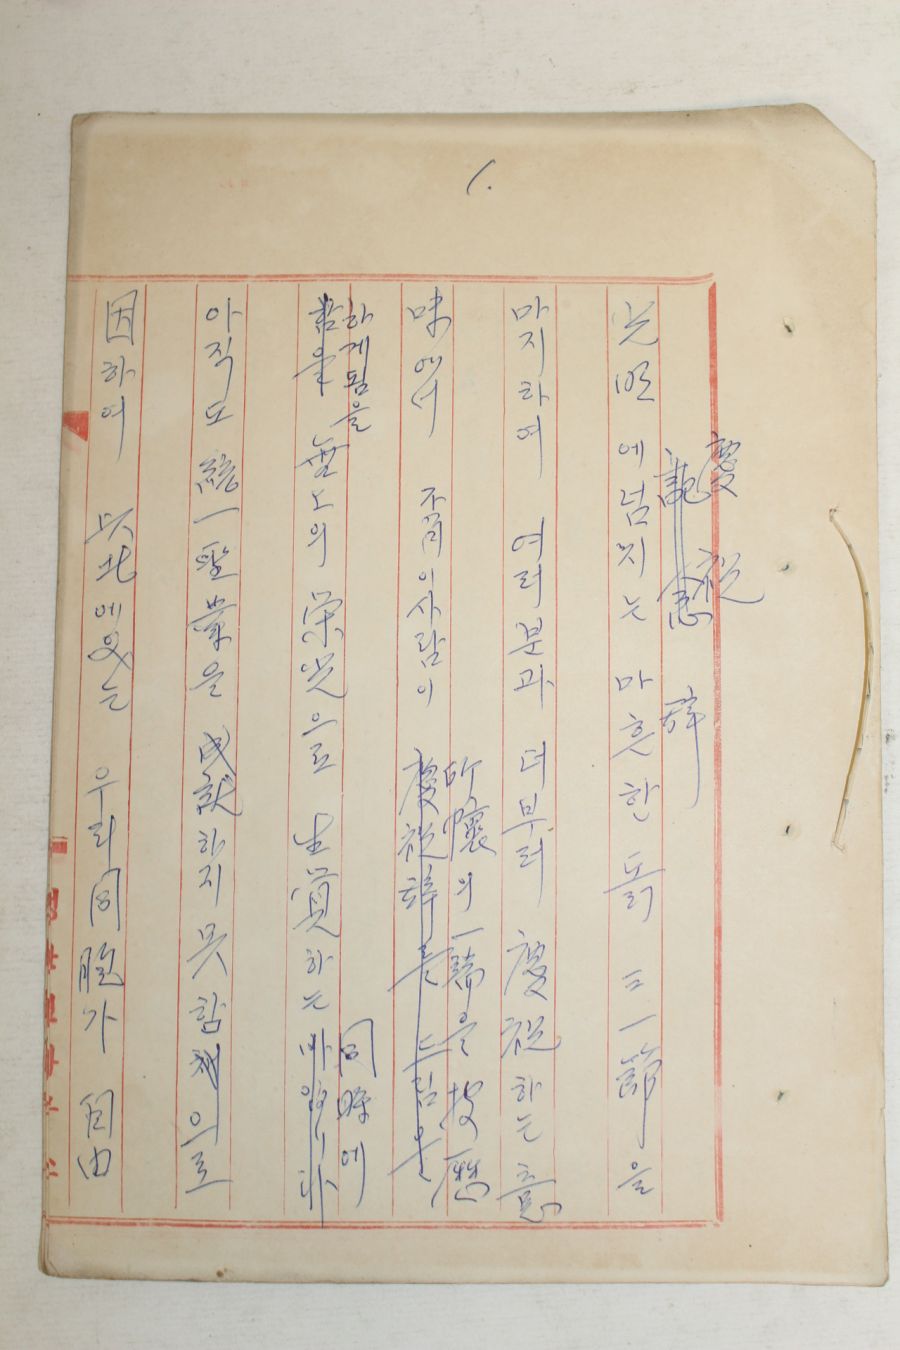 1.
慶祝辞
記念
光明에넘치는 마흔한돐 三一節을
마지하여 여러분과 더부러 慶祝하는 意
味에서 不肖이사람이 慶祝辞를드림을
所懷의一端을披歴
하게됨을
無上의 栄光으로 生覚하는
同時에
아직도 統一聖業을 成就하지못함 으로
因하여 以北에있는 우리同胞가 自由